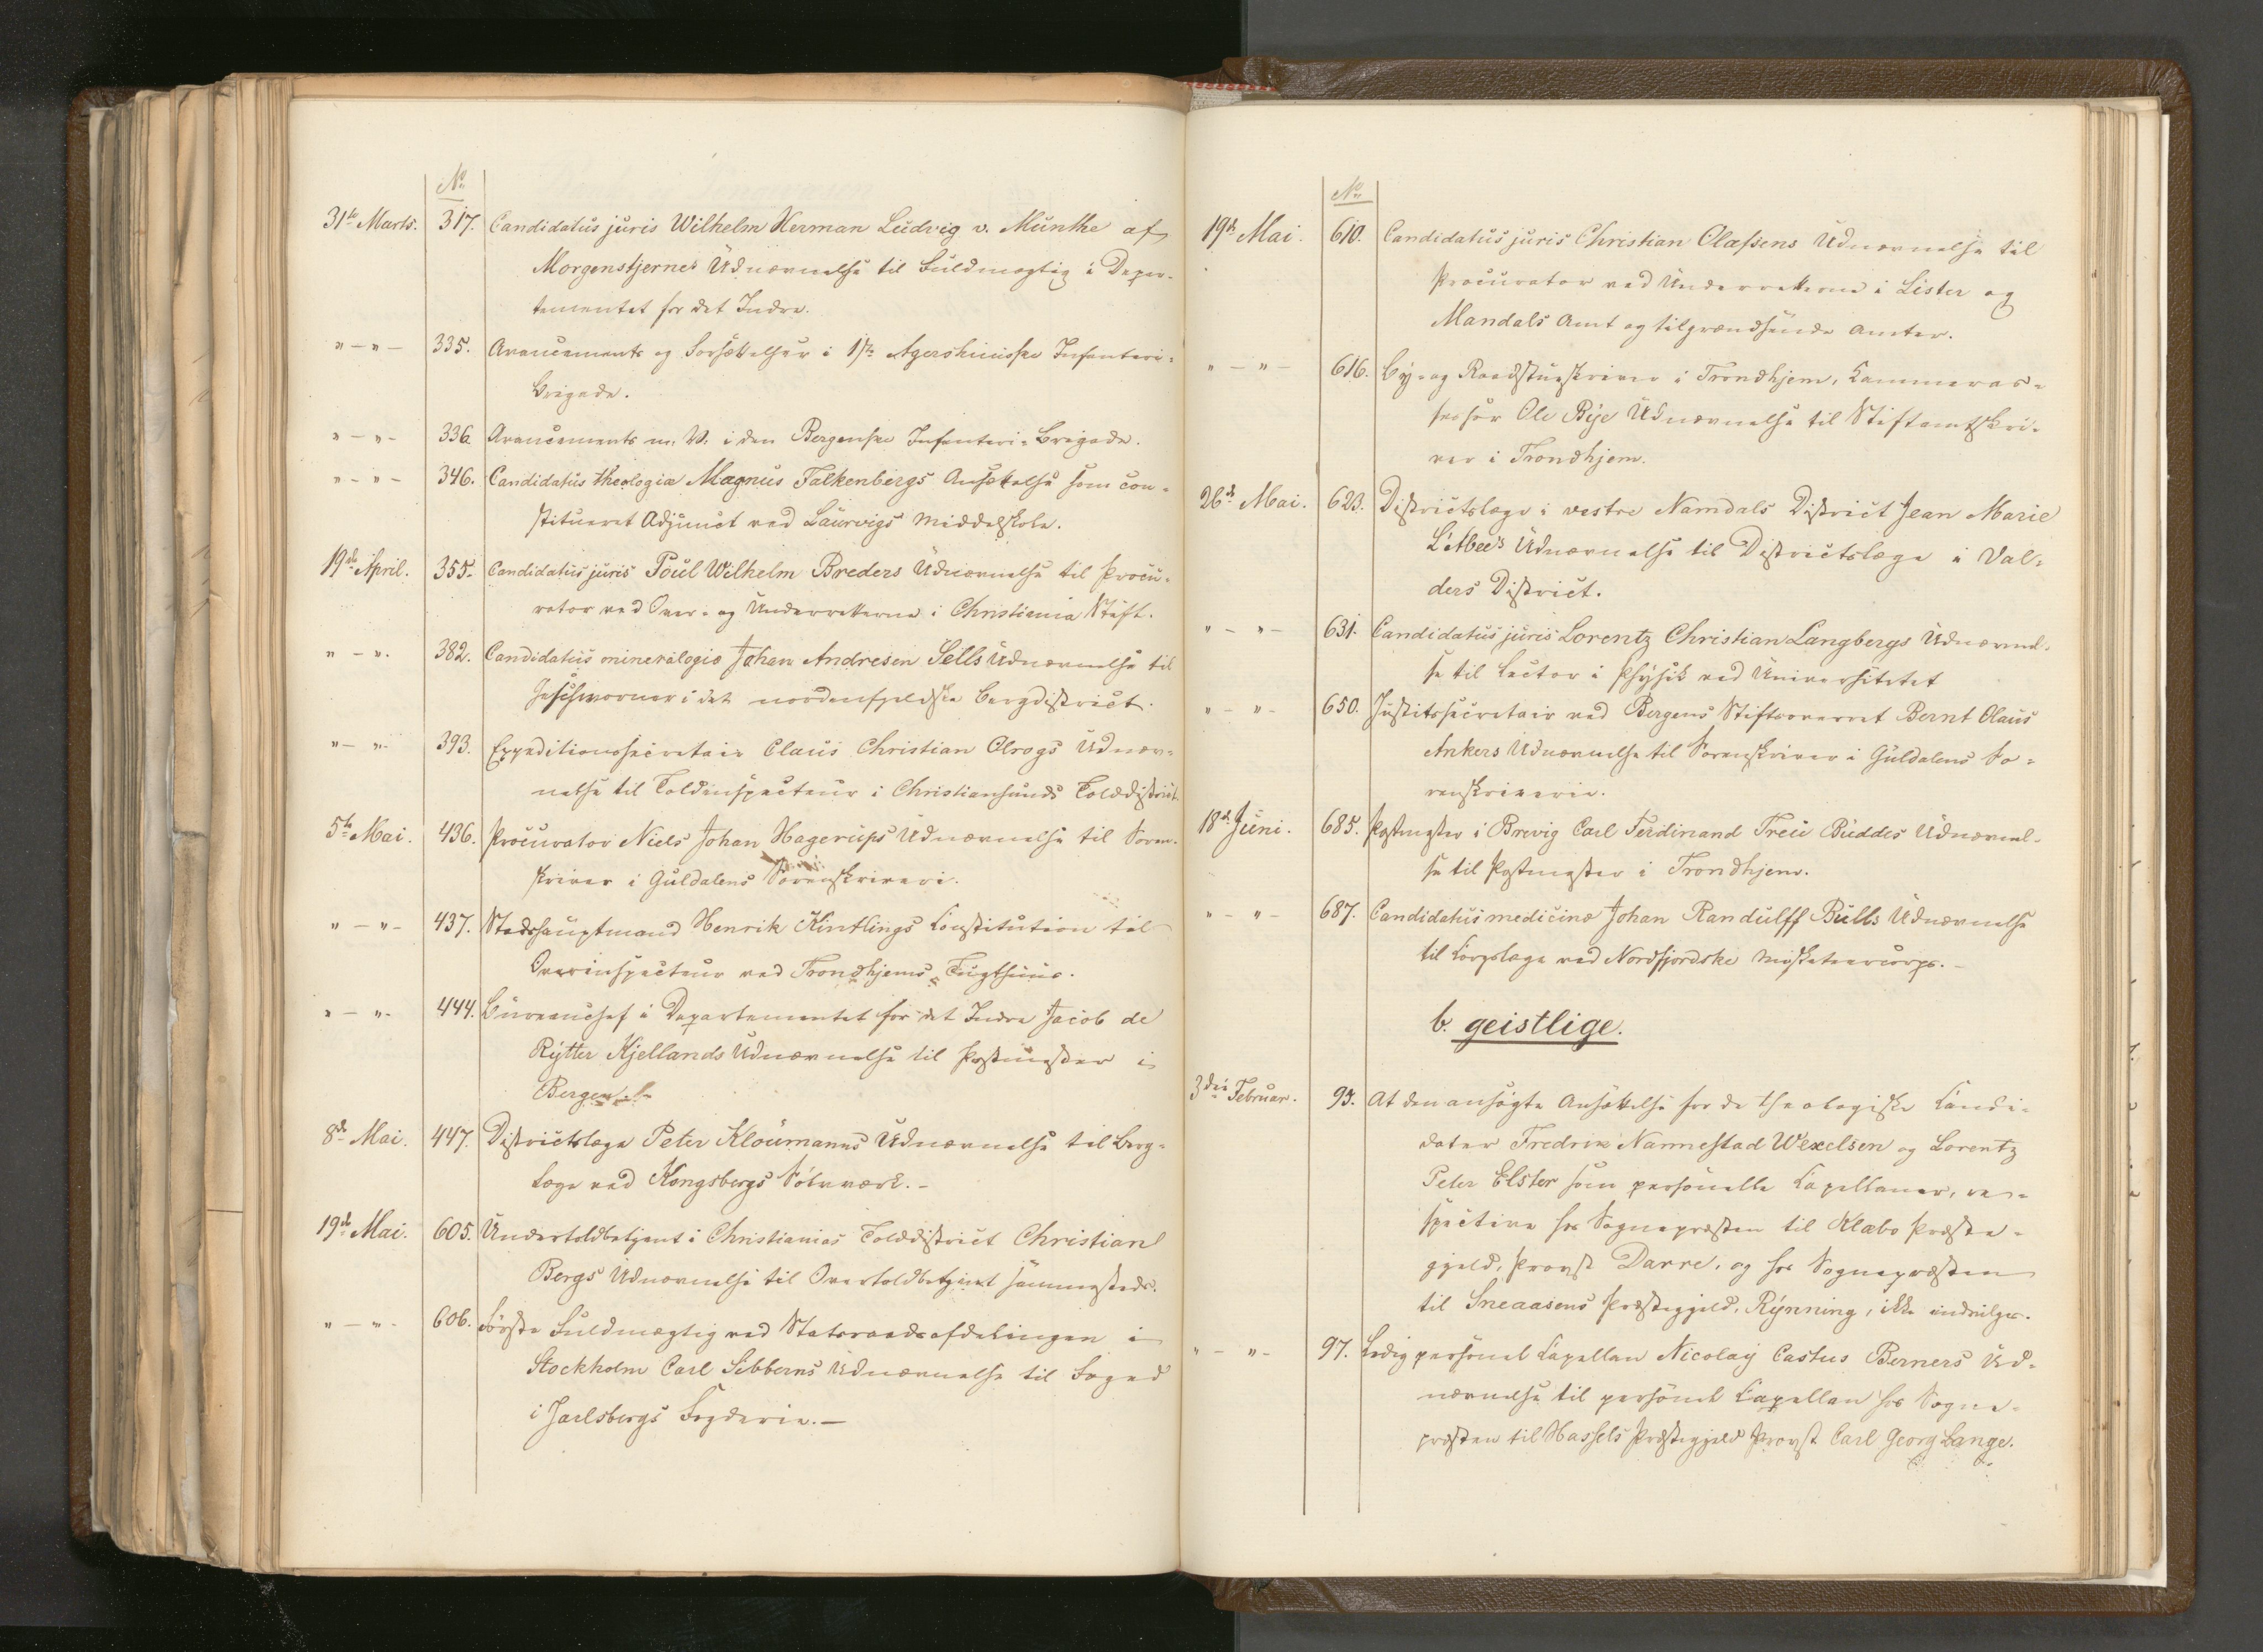 No
31te Marts. 317. Candidatus juris Wilhelm Herman Ludvig v. Munthe af
Morgenstjernes Udnævnelse til Fuldmægtig i Depar-
tementet for det Indre.
" — " — 335. Avancements og Forsættelser i 1ste Agershuusske Infanteri-
Brigade.
" — " — 336. Avancements m. V. i den Bergenske Infanteri-Brigade.
" — " — 346. Candidatus theologiæ Magnus Falkenbergs Ansættelse som con-
stitueret Adjunct ved Laurvigs Middelskole.
19de April. 355. Candidatus juris Poul Wilhelm Breders Udnævnelse til Procu-
rator ved Over- og Underretterne i Christiania Stift.
" — " . 382. Candidatus mineralogiæ Johan Andresen Sells Udnævnelse til
Geschworner i det nordenfjeldske Bergdistrict.
" — " - 393. Expeditionssecretair Claus Christian Olrogs Udnæv-
nelse til Toldinspecteur i Christianssunds Tolddistrict.
5te Mai. 436. Procurator Niels Johan Hagerups Udnævnelse til Soren-
skriver i Guldalens Sorenskriveri.
" — " - 437. Stadshauptmand Henrik Kintlings Constitution til
Overinspecteur ved Trondhjems Tugthuus.
" — " - 444. Bureauchef i Departementet for det Indre Jacob de
Rytter Kjellands Udnævnelse til Postmester i
Bergen. -
8de Mai. 447. Districtslæge Peter Kloumanns Udnævnelse til Berg-
læge ved Kongsbergs Sølvværk. -
19de Mai. 605. Undertoldbetjent i Christianias Tolddistrict Christian
Bergs Udnævnelse til Overtoldbetjent sammesteds.
" — " - 606. Første Fuldmægtig ved Statsraadsafdelingen i
Stockholm Carl Sibberns Udnævnelse til Foged
i Jarlsbergs Fogderie. —
No
19de Mai. 610. Candidatus juris Christian Olassens Udnævnelse til
Procurator ved Underretterne i Lister og
Mandals Amt og tilgrændsende Amter.
" — " — 616. By- og Raadstueskriver i Trondhjem, Kammeras-
sessor Ole Bye Udnævnelse til Stiftamtskri-
ver i Trondhjem.
26de Mai. 623. Districtslæge i vestre Namdals District Jean Marie
L'Abee's Udnævnelse til Districtslæge i Val-
ders District.
" — " — 631. Candidatus juris Lorentz Christian Langbergs Udnævnel-
se til Lector i Physik ved Universitetet
" — " - 650. Justitssecretair ved Bergens Stiftsoverret Bernt Olaus
Ankers Udnævnelse til Sorenskriver i Guldalens So-
renskriverie.
18de Juni. 685. Postmester i Brevig Carl Ferdinand Treu Buddes Udnævnel-
se til Postmester i Trondhjem.
" — " — 687. Candidatus medicinæ Johan Randulff Bulls Udnævnelse
til Corpslæge ved Nordfjordske Musketeercorps. -
b. geistlige.
3die Februar. 93. At den ansøgte Ansættelse for de theologiske Candi-
dater Fredrik Nannestad Wexelsen og Lorentz
Peter Elster som personelle Capellaner, re-
spective hos Sognepræsten til Klæbo Præste-
gjeld, Provst Darre, og hos Sognepræsten
til Sneaasens Præstegjeld, Rynning, ikke indvilges.
" — " - 97. Ledig personel Capellan Nicolay Castus Berners Ud-
nævnelse til personel Capellan hos Sogne-
præsten til Hassels Præstegjeld Provst Carl Georg Lange.